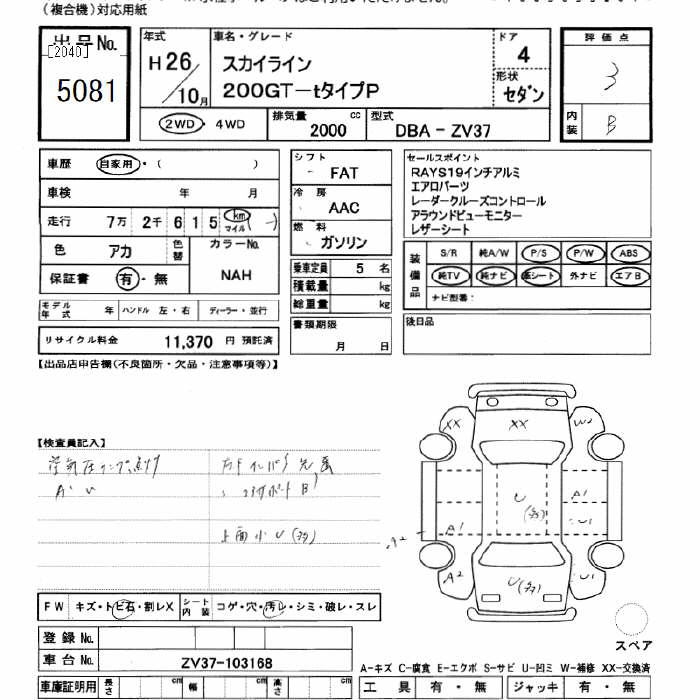 (複合機)対応用紙
出品No.
[2040]
5081
年式
H26/10月
車名・グレード
スカイライン
200GT-tタイプP
ドア
4
形状
セダン
2WD・4WD
排気量
2000 cc
型式
DBA-ZV37
評価点
3
内装
B
車歴 自家用・( )
車検 年 月
走行 7万 2千 6 1 5 km マイル (-)
色 アカ 色替 カラーNo.
NAH
保証書 有・無
モデル年式 年 ハンドル 左・右 ディーラー・並行
リサイクル料金 11,370 円 預託済
シフト
FAT
冷房
AAC
燃料
ガソリン
乗車定員 5 名
積載量 kg
総重量 kg
書類期限
月 日
セールスポイント
RAYS19インチアルミ
エアロパーツ
レーダークルーズコントロール
アラウンドビューモニター
レザーシート
装備品
S/R 純A/W P/S P/W ABS
純TV 純ナビ 革シート 外ナビ エアB
ナビ型番:
後日品
【出品店申告欄(不良箇所・欠品・注意事項等)】
【検査員記入】
空気圧ランプ点灯
上面小U(多)
XX
XX
W2
U(多)
A1
U1
A1
A2
A2
U(多)
U1
FW キズ・トビ石・割レX シート内装 コゲ・穴・汚レ・シミ・破レ・スレ
登録No.
車台No. ZV37-103168
車庫証明用 長さ cm 幅 cm 高さ cm
スペア
A-キズ C-腐食 E-エクボ S-サビ U-凹ミ W-補修 XX-交換済
工具 有・無 ジャッキ 有・無